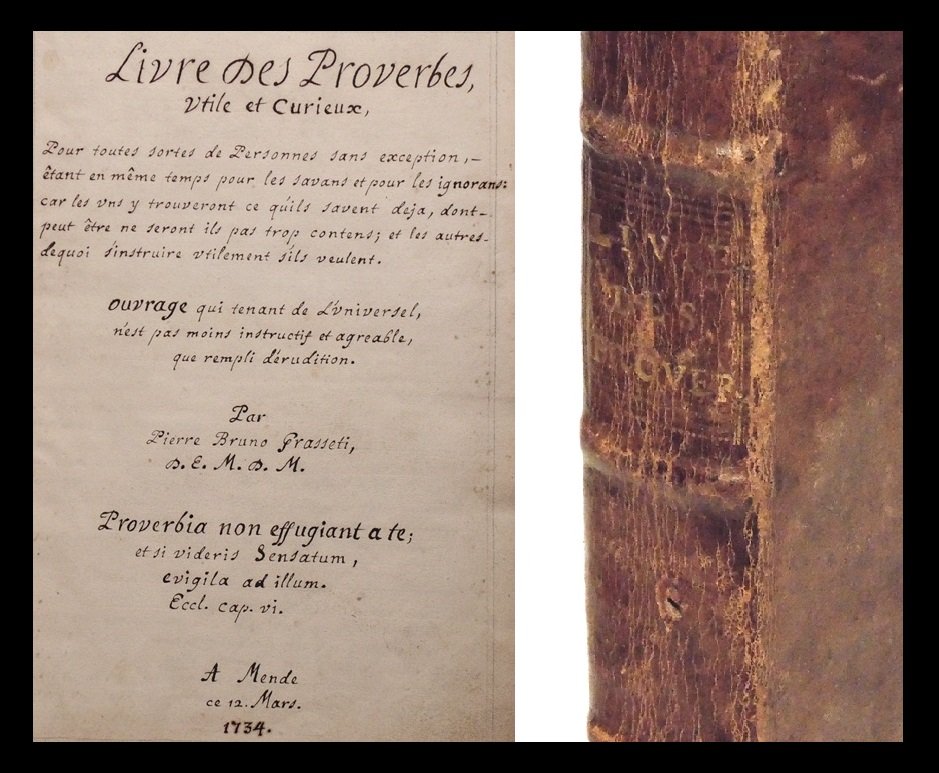 Livre Des Proverbes,
Vtile et Curieux,
Pour toutes sortes de Personnes sans exception,-
êtant en même temps pour les savans et pour les ignorans:
car les vns y trouveront ce qu'ils savent deja, dont-
peut être ne seront ils pas trop contens; et les autres-
dequoi s'instruire vtilement s'ils veulent.
ouvrage qui tenant de L'vniversel,
n'est pas moins instructif et agreable,
que rempli d'érudition.
Par
Pierre Bruno Grasseti,
D. E. M. D. M.
Proverbia non effugiant a te;
et si videris Sensatum,
evigila ad illum.
Eccl. cap. vi.
A Mende
ce 12. Mars.
1734.
LIVRE
DES
PROVER.